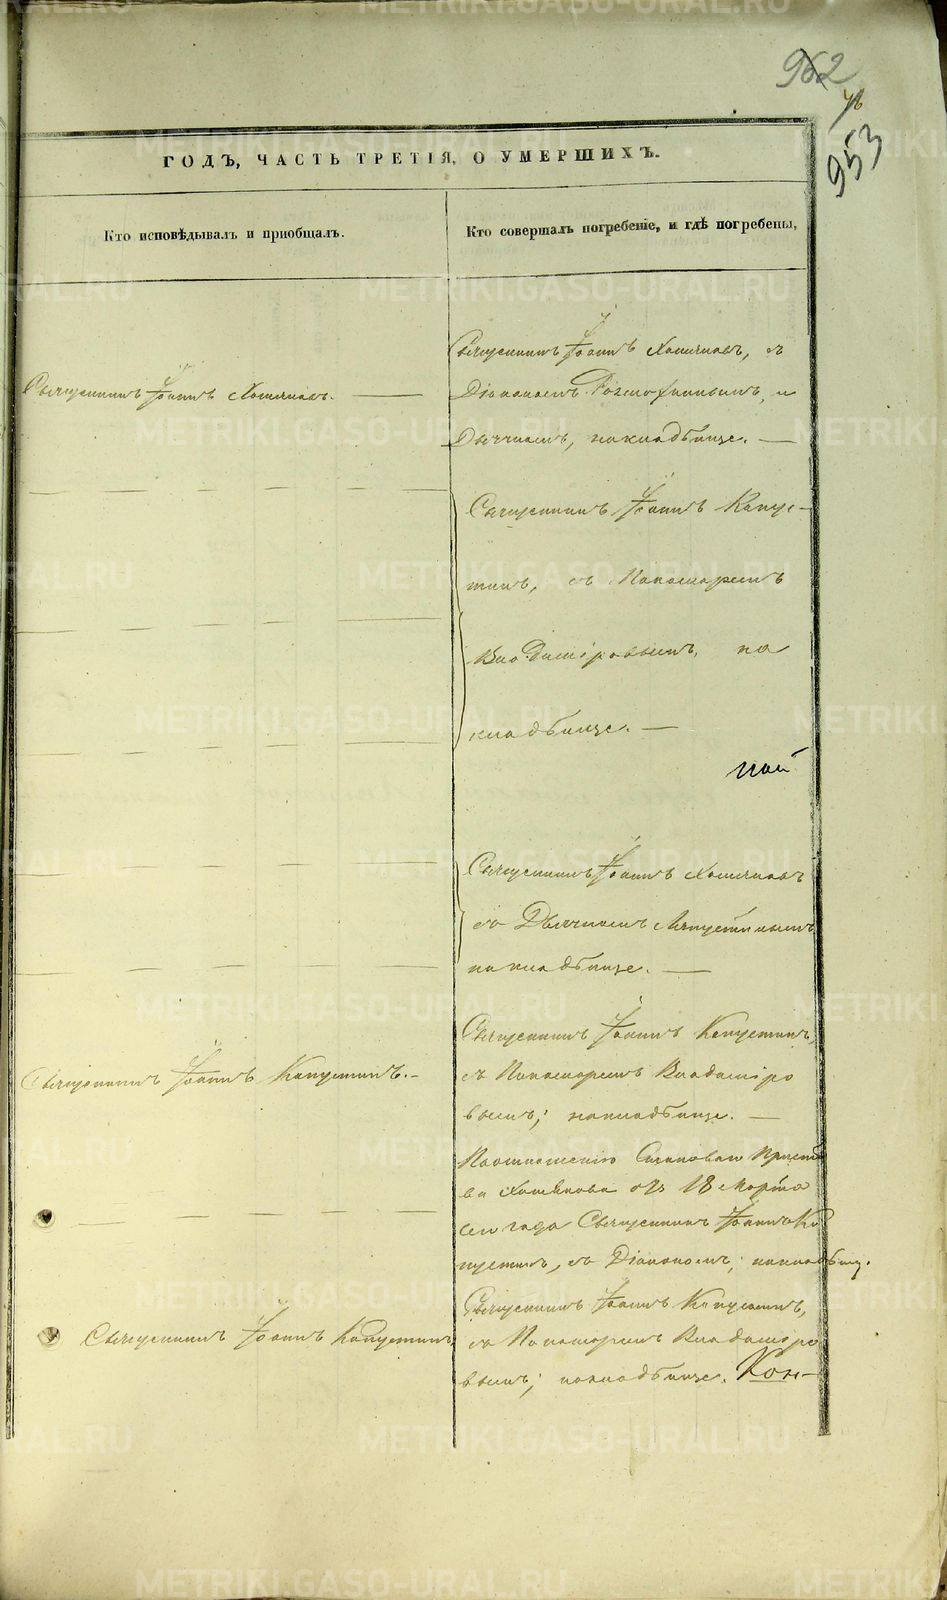 962
953
ГОДЪ, ЧАСТЬ ТРЕТІЯ, О УМЕРШИХЪ.
Кто исповѣдывалъ и приобщалъ.
Кто совершалъ погребеніе, и гдѣ погребены,
Священникъ Іоаннъ Хомяковъ, съ
Священникъ Іоаннъ Хомяковъ.
Діакономъ, и
Дьячкомъ, на кладбище.
Священникъ Іоаннъ Капус-
тинъ, съ Пономаремъ
Владиміровымъ, на
кладбище.
Священникъ Іоаннъ Хомяковъ
съ Дьячкомъ
на кладбище.
Священникъ Іоаннъ Капустинъ,
Священникъ Іоаннъ Капустинъ.
съ Пономаремъ Владиміро
вымъ; на кладбище.
По отношенію Становаго Приста
ва Хомякова отъ 18 Марта
сего года Священникъ Іоаннъ Ка
пустинъ, съ Діакономъ; на кладбищ.
Священникъ Іоаннъ Капустинъ,
Священникъ Іоаннъ Капустинъ
съ Пономаремъ Владиміро
вымъ; на кладбище. Кон-
METRIKI.GASO-URAL.RU